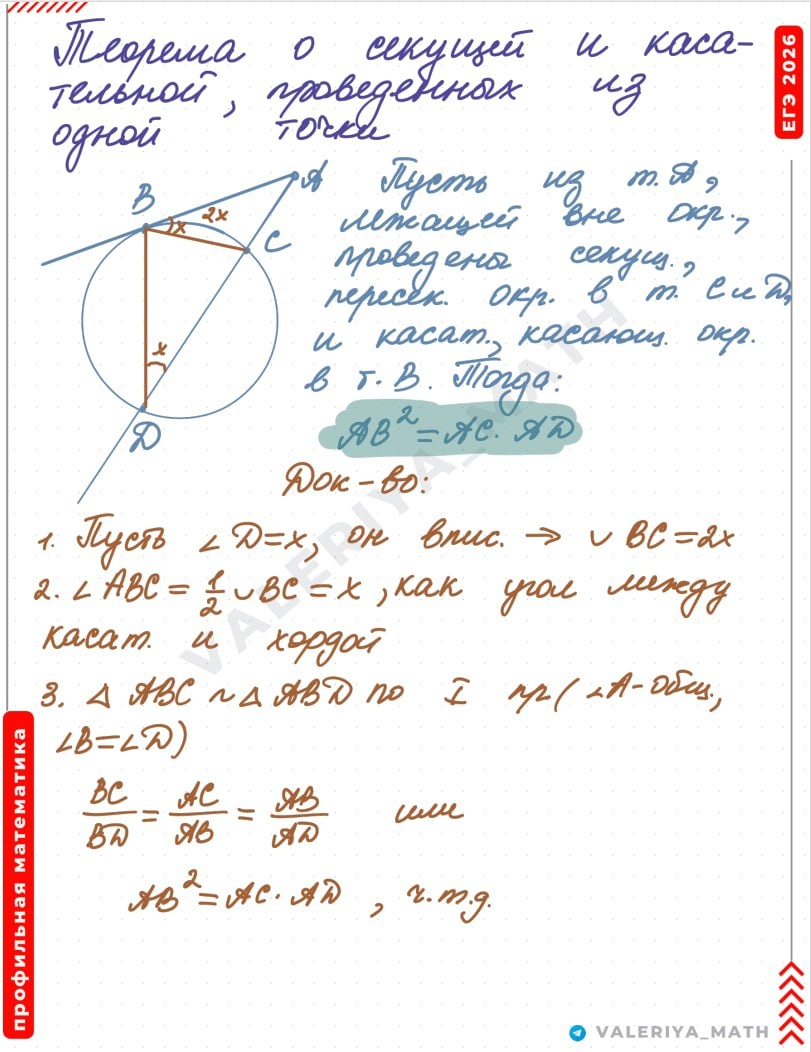 Теорема о секущей и каса-
тельной, проведенных из
одной точки
ЕГЭ 2026
A
B
2x
x
C
x
D
Пусть из т. A,
лежащей вне окр.,
проведены секущ.,
пересек. окр. в т. C и D,
и касат., касающ. окр.
в т. B. Тогда:
AB² = AC · AD
Док-во:
1. Пусть ∠D=x, он впис. → ∪ BC = 2x
2. ∠ABC = 1/2 ∪BC = x, как угол между
касат. и хордой
3. △ ABC ~ △ ABD по I пр (∠A-общ.,
∠B=∠D)
BC/BD = AC/AB = AB/AD или
AB² = AC · AD, ч.т.д.
профильная математика
VALERIYA_MATH
VALERIYA_MATH